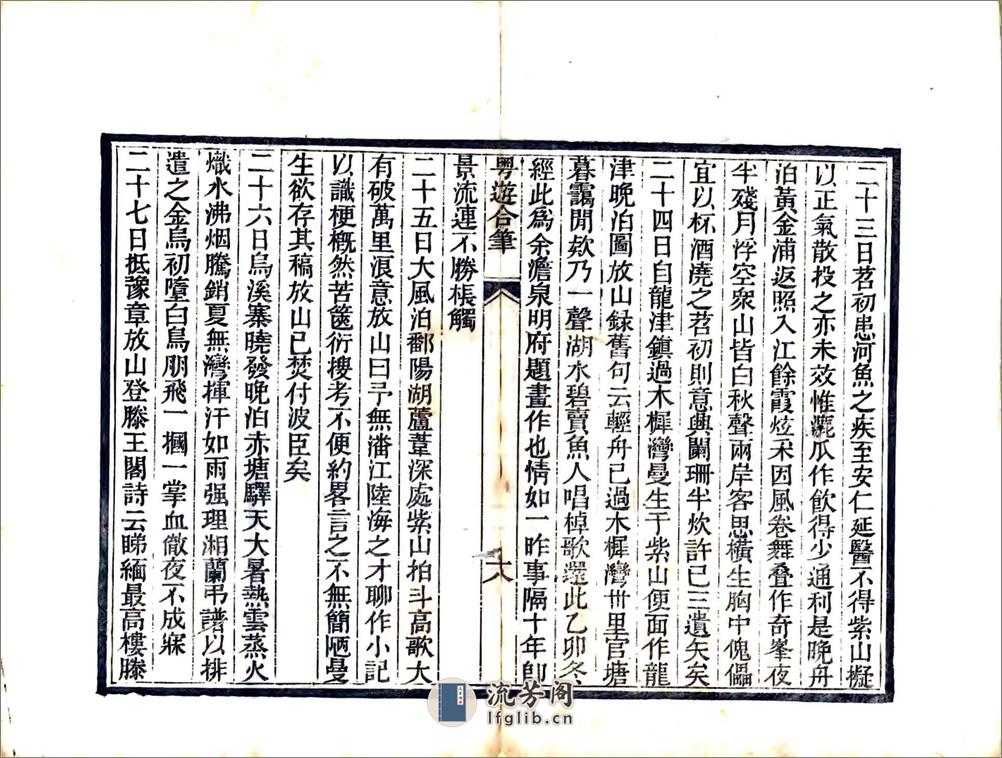 二十三日苕初患河魚之疾至安仁延醫不得紫山擬
以正氣散投之亦未效惟漉瓜作飲得少通利是晚舟
泊黃金浦返照入江餘霞炫采因風卷舞叠作奇峯夜
半殘月浮空衆山皆白秋聲兩岸客思橫生胸中傀儡
宜以杯酒澆之苕初則意興闌珊半炊許已三遺矢矣
二十四日自龍津鎮過木樨灣曼生于紫山便面作龍
津晚泊圖放山録舊句云輕舟已過木樨灣卅里官塘
暮靄閒欸乃一聲湖水碧賣魚人唱棹歌還此乙卯冬
經此爲余澹泉明府題畫作也情如一昨事隔十年卽
粤遊合筆
六
景流連不勝棖觸
二十五日大風泊鄱陽湖蘆葦深處紫山拍斗高歌大
有破萬里浪意放山曰予無潘江陸海之才聊作小記
以識梗概然苦篋衍搜考不便約畧言之不無簡陋曼
生欲存其稿放山已焚付波臣矣
二十六日烏溪寨曉發晚泊赤塘驛天大暑熱雲蒸火
熾水沸烟騰銷夏無灣揮汗如雨强理湘蘭弔譜以排
遣之金烏初墮白鳥朋飛一摑一掌血儆夜不成寐
二十七日抵豫章放山登滕王閣詩云睇緬最高樓滕
流芳阁
lfglib.cn